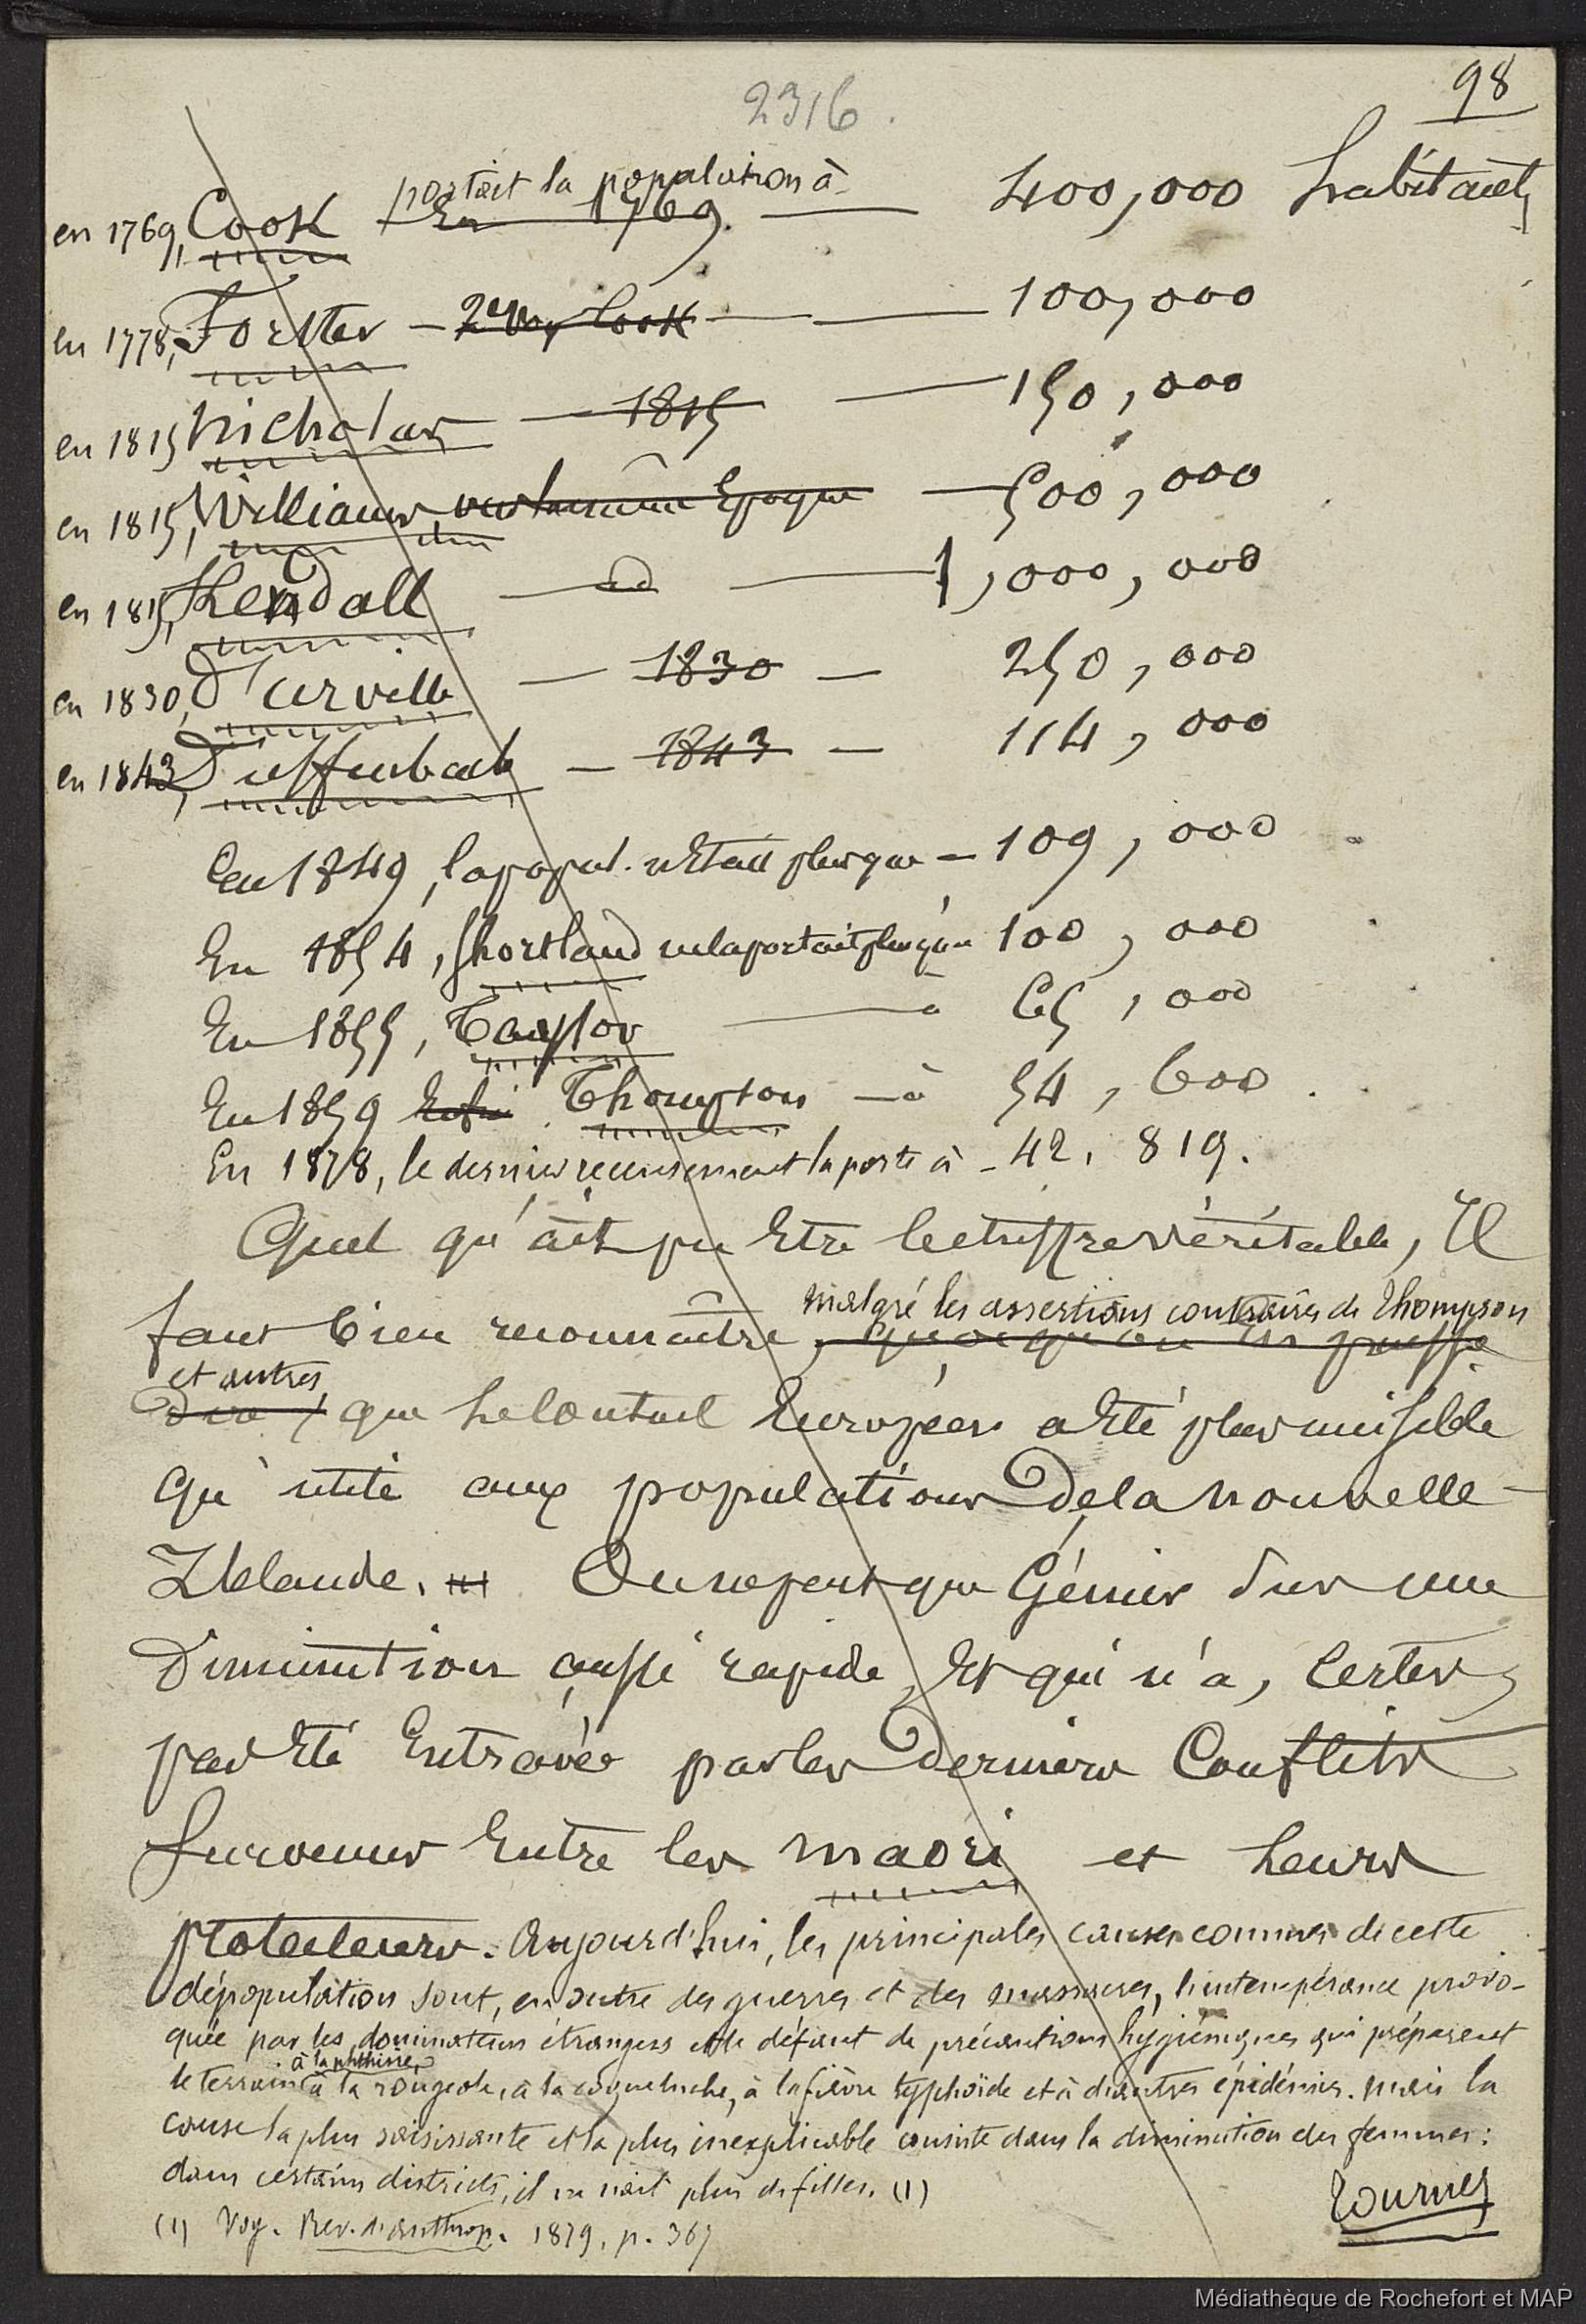 98
2316.
portait la population à
en 1769, Cook En 1769. — 400,000 habitants
en 1778, Forster — 2e voy Cook — 100,000
en 1815 Nicholas — 1815 — 150,000
en 1815, Williams, vers la même Epoque — 500,000
en 1815, Kendall — id — 1,000,000
en 1830, D'urville — 1830 — 250,000
en 1843, Dieffenbach — 1843 — 114,000
En 1849, la popul. n'Etait plus que — 109,000
En 1854, Shortland ne la portait plus qu'à 100,000
En 1855, Taylor — à 65,000
En 1859 Enfin Thompson — à 54,600.
En 1878, le dernier recensement la porte à - 42,819.
Quel qu'ait pu Etre le chiffre véritable, Il
malgré les assertions contraires de Thompson
faut bien reconnaître, quoiqu'on en puisse
et autres,
dire, que le Contact Européen a Eté plus nuisible
qu'utile aux populations de la Nouvelle-
Zélande. On ne peut que Gémir sur une
Diminution aussi rapide, Et qui n'a, Certes,
pas Eté Entravée par les Derniers Conflits
Survenus Entre les Maori et Leurs
Protecteurs. Aujourd'hui, les principales causes connues de cette
dépopulation sont, en outre des guerres et des massacres, l'intempérance provo-
quée par les dominateurs étrangers et le défaut de précautions hygiéniques qui préparent
à la phthisie,
le terrain à la rougeole, à la coqueluche, à la fièvre typhoïde et à d'autres épidémies. Mais la
cause la plus saisissante et la plus inexplicable consiste dans la diminution des femmes:
dans certains districts, il ne nait plus de filles. (1)
Tournez
(1) Voy. Rev. d'anthrop. 1879, p. 367
Médiathèque de Rochefort et MAP